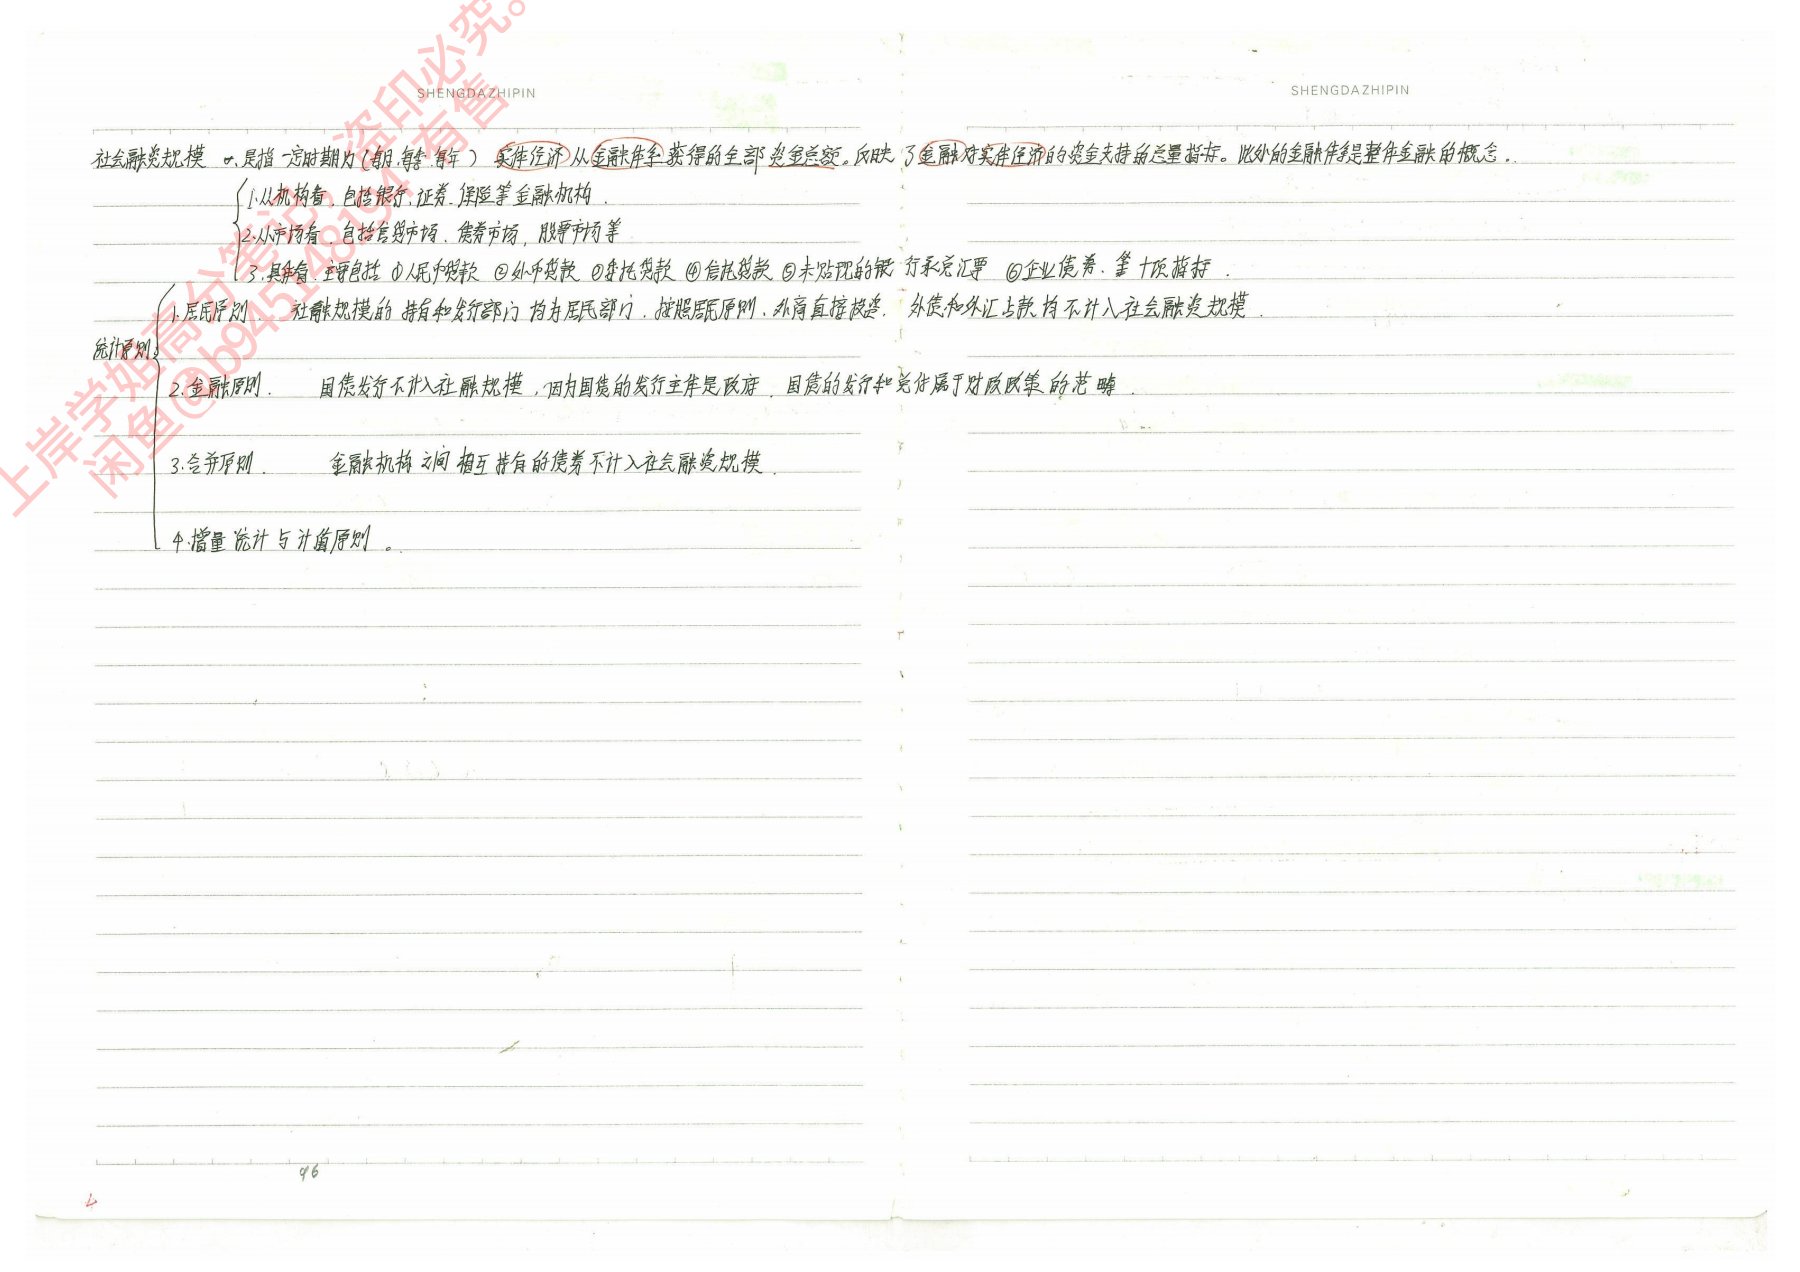 SHENGDAZHIPIN
SHENGDAZHIPIN
社会融资规模 是指一定时期内(每月、每季、每年)实体经济从金融体系获得的全部资金总额。反映了金融对实体经济的资金支持的总量指标。此处的金融体系是整体金融的概念.
1.从机构看,包括银行、证券、保险等金融机构.
2.从市场看,包括信贷市场、债券市场,股票市场等
3.具体看.主要包括 ①人民币贷款 ②外币贷款 ③委托贷款 ④信托贷款 ⑤未贴现的银行承兑汇票 ⑥企业债券.等十项指标.
统计原则
1.居民原则. 社融规模的持有和发行部门均为居民部门.按照居民原则、外商直接投资.外债和外汇占款均不计入社会融资规模.
2.金融原则. 国债发行不计入社融规模,因为国债的发行主体是政府.国债的发行和兑付属于财政政策的范畴.
3.合并原则. 金融机构之间相互持有的债券不计入社会融资规模.
4.增量统计与计值原则。
96
4
上岸学姐高分笔记,盗印必究。
闲鱼@b945148194 有售